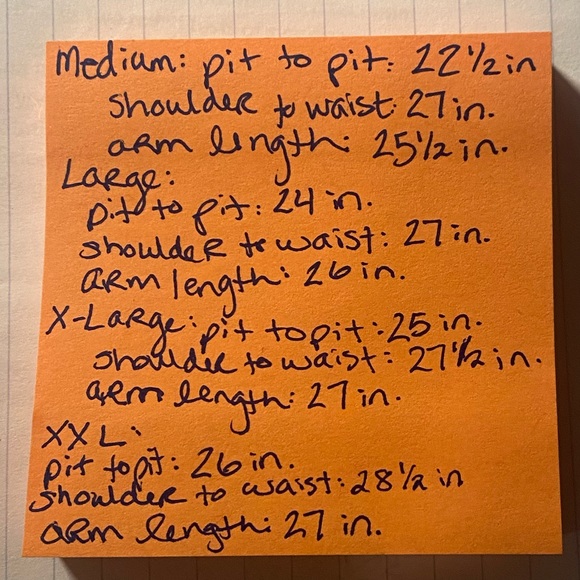 Medium: pit to pit: 22 1/2 in
shoulder to waist: 27 in.
arm length: 25 1/2 in.
Large:
pit to pit: 24 in.
shoulder to waist: 27 in.
arm length: 26 in.
X-Large: pit to pit: 25 in.
shoulder to waist: 27 1/2 in.
arm length: 27 in.
XXL:
pit to pit: 26 in.
shoulder to waist: 28 1/2 in
arm length: 27 in.